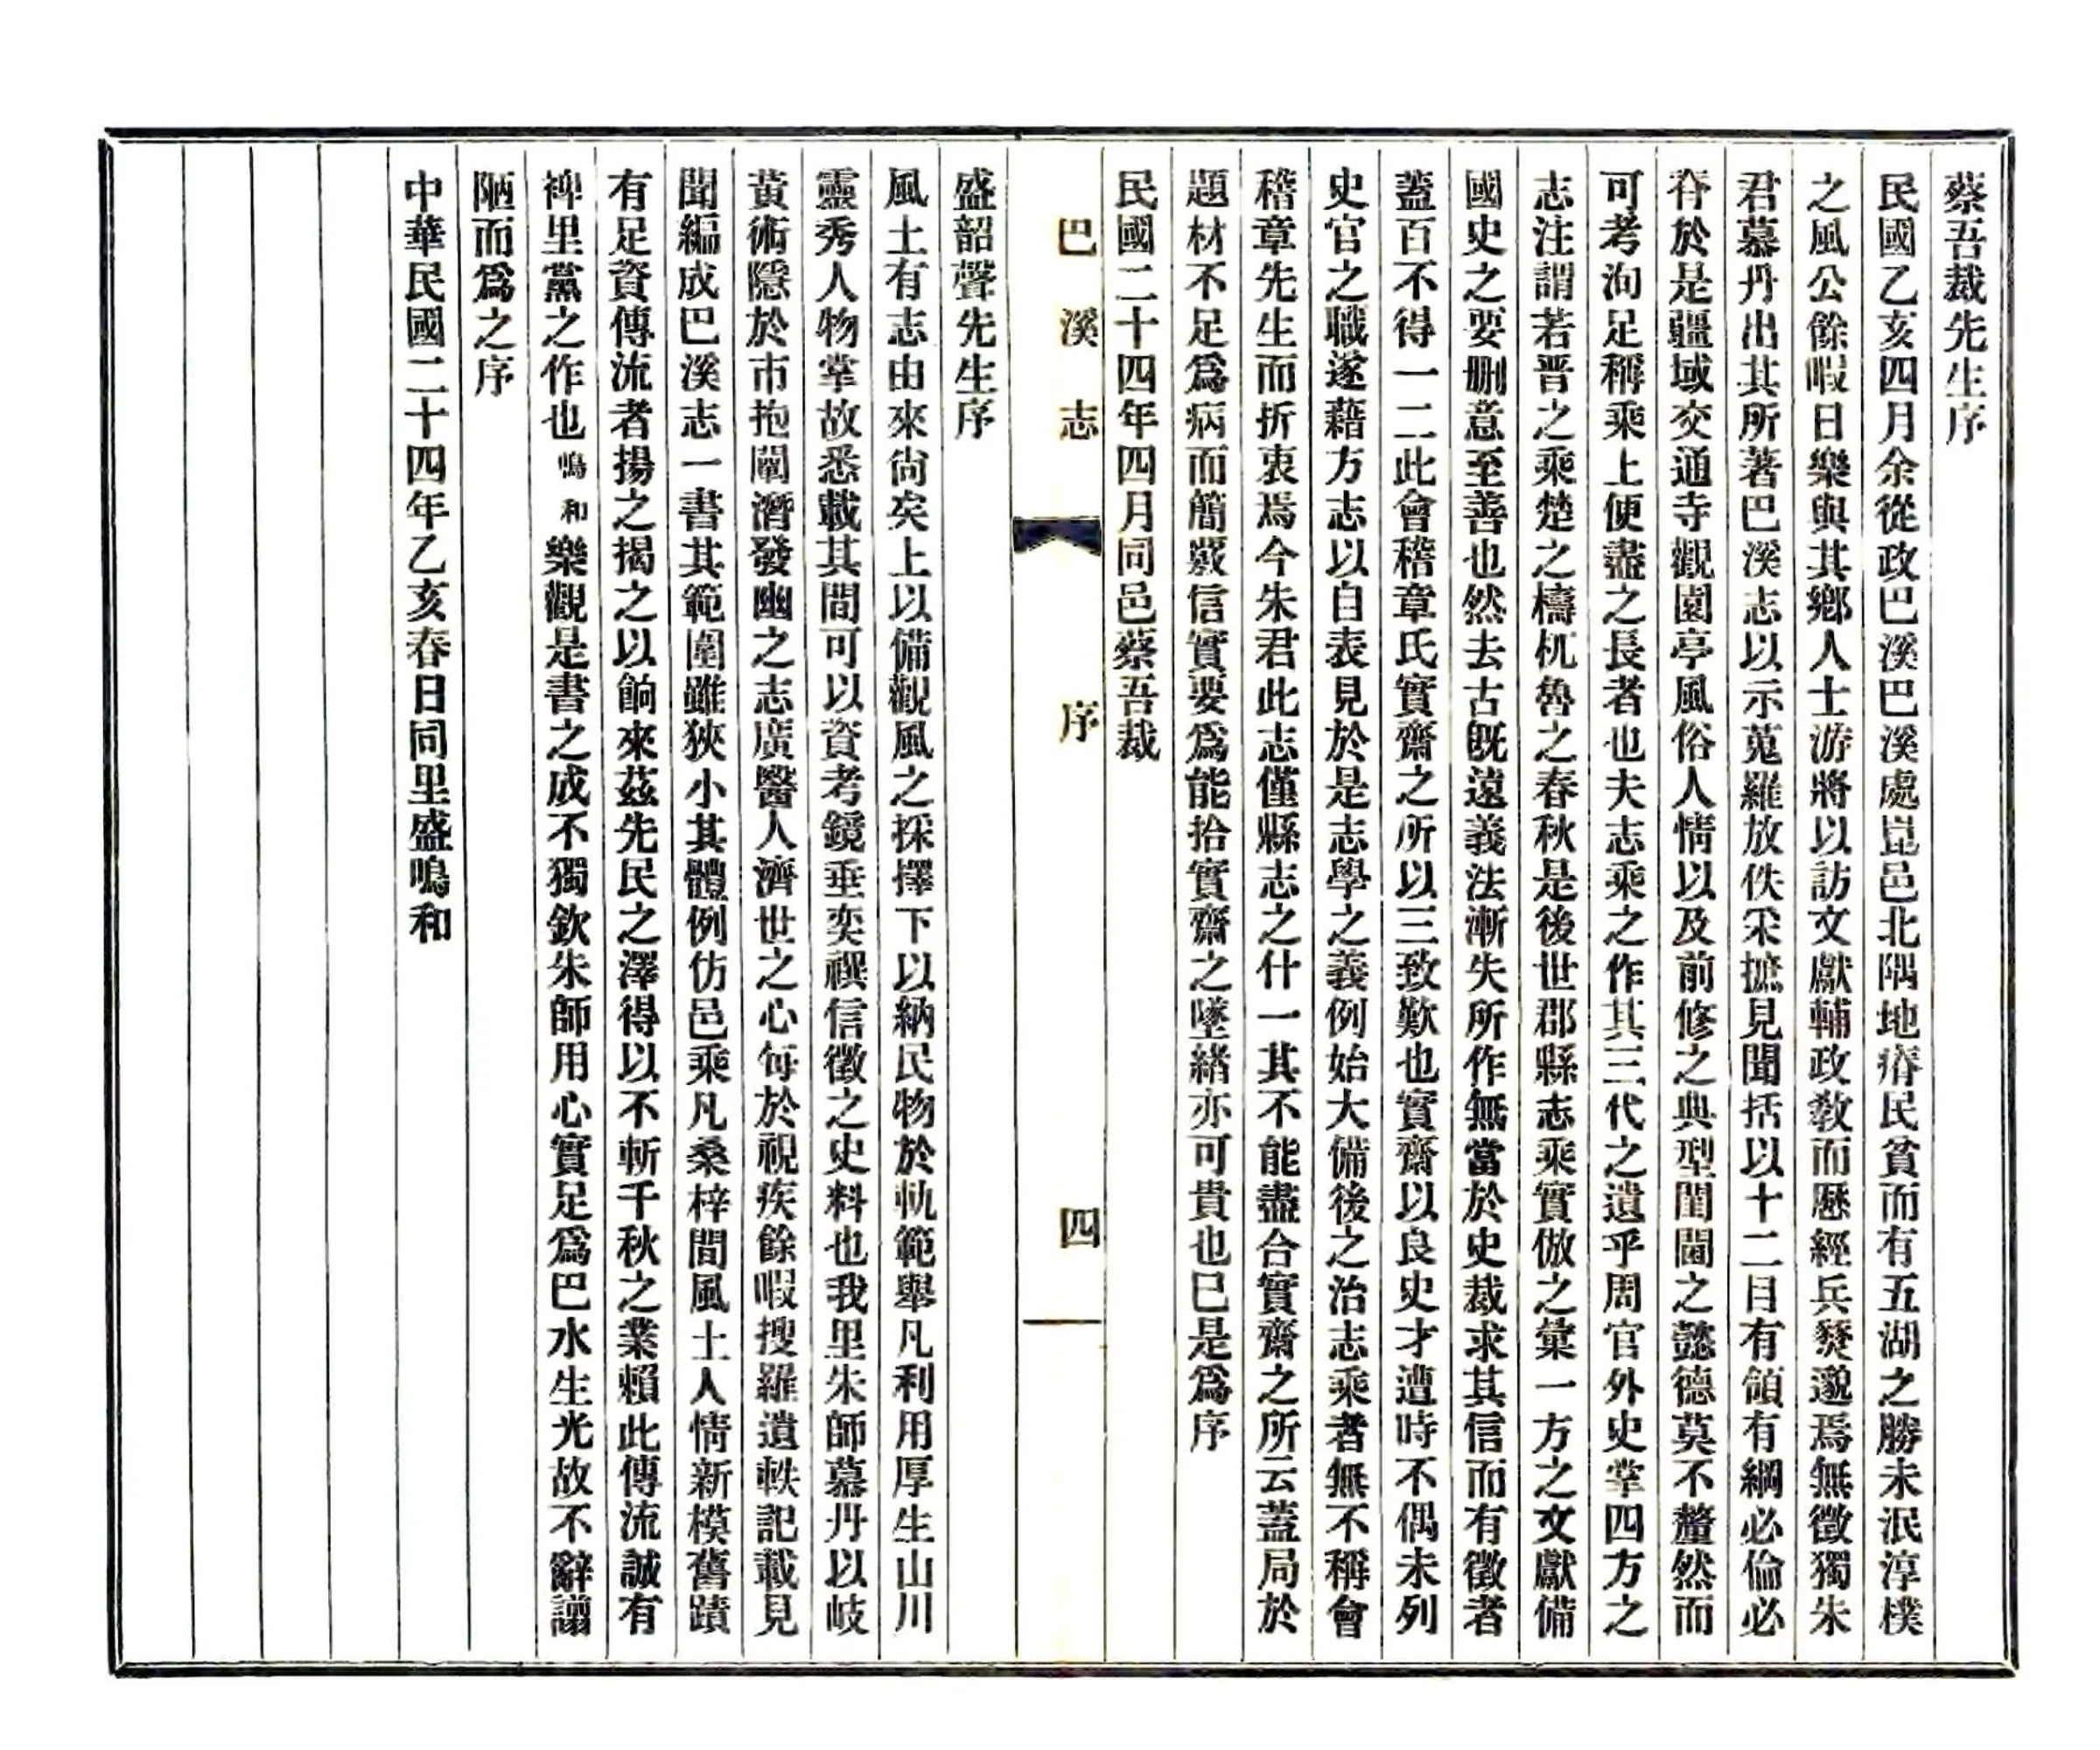 蔡吾裁先生序
民國乙亥四月余從政巴溪巴溪處崑邑北隅地瘠民貧而有五湖之勝未泯淳樸
之風公餘暇日樂與其鄉人士游將以訪文獻輔政敎而歷經兵燹邈焉無徵獨朱
君慕丹出其所著巴溪志以示蒐羅放佚采摭見聞括以十二目有領有綱必倫必
脊於是疆域交通寺觀園亭風俗人情以及前修之典型閨閫之懿德莫不釐然而
可考洵足稱乘上便盡之長者也夫志乘之作其三代之遺乎周官外史掌四方之
志注謂若晋之乘楚之檮杌魯之春秋是後世郡縣志乘實倣之彙一方之文獻備
國史之要删意至善也然去古旣遠義法漸失所作無當於史裁求其信而有徵者
蓋百不得一二此會稽章氏實齋之所以三致歎也實齋以良史才遭時不偶未列
史官之職遂藉方志以自表見於是志學之義例始大備後之治志乘者無不稱會
稽章先生而折衷焉今朱君此志僅縣志之什一其不能盡合實齋之所云蓋局於
題材不足爲病而簡嚴信實要爲能拾實齋之墜緒亦可貴也已是爲序
民國二十四年四月同邑蔡吾裁
巴溪志 序 四
盛韶聲先生序
風土有志由來尙矣上以備觀風之採擇下以納民物於軌範舉凡利用厚生山川
靈秀人物掌故悉載其間可以資考鏡垂奕禩信徵之史料也我里朱師慕丹以岐
黃術隱於市抱闡潛發幽之志廣醫人濟世之心每於視疾餘暇搜羅遺軼記載見
聞編成巴溪志一書其範圍雖狹小其體例仿邑乘凡桑梓間風土人情新模舊蹟
有足資傳流者揚之揭之以餉來茲先民之澤得以不斬千秋之業賴此傳流誠有
裨里黨之作也鳴和樂觀是書之成不獨欽朱師用心實足爲巴水生光故不辭譾
陋而爲之序
中華民國二十四年乙亥春日同里盛鳴和